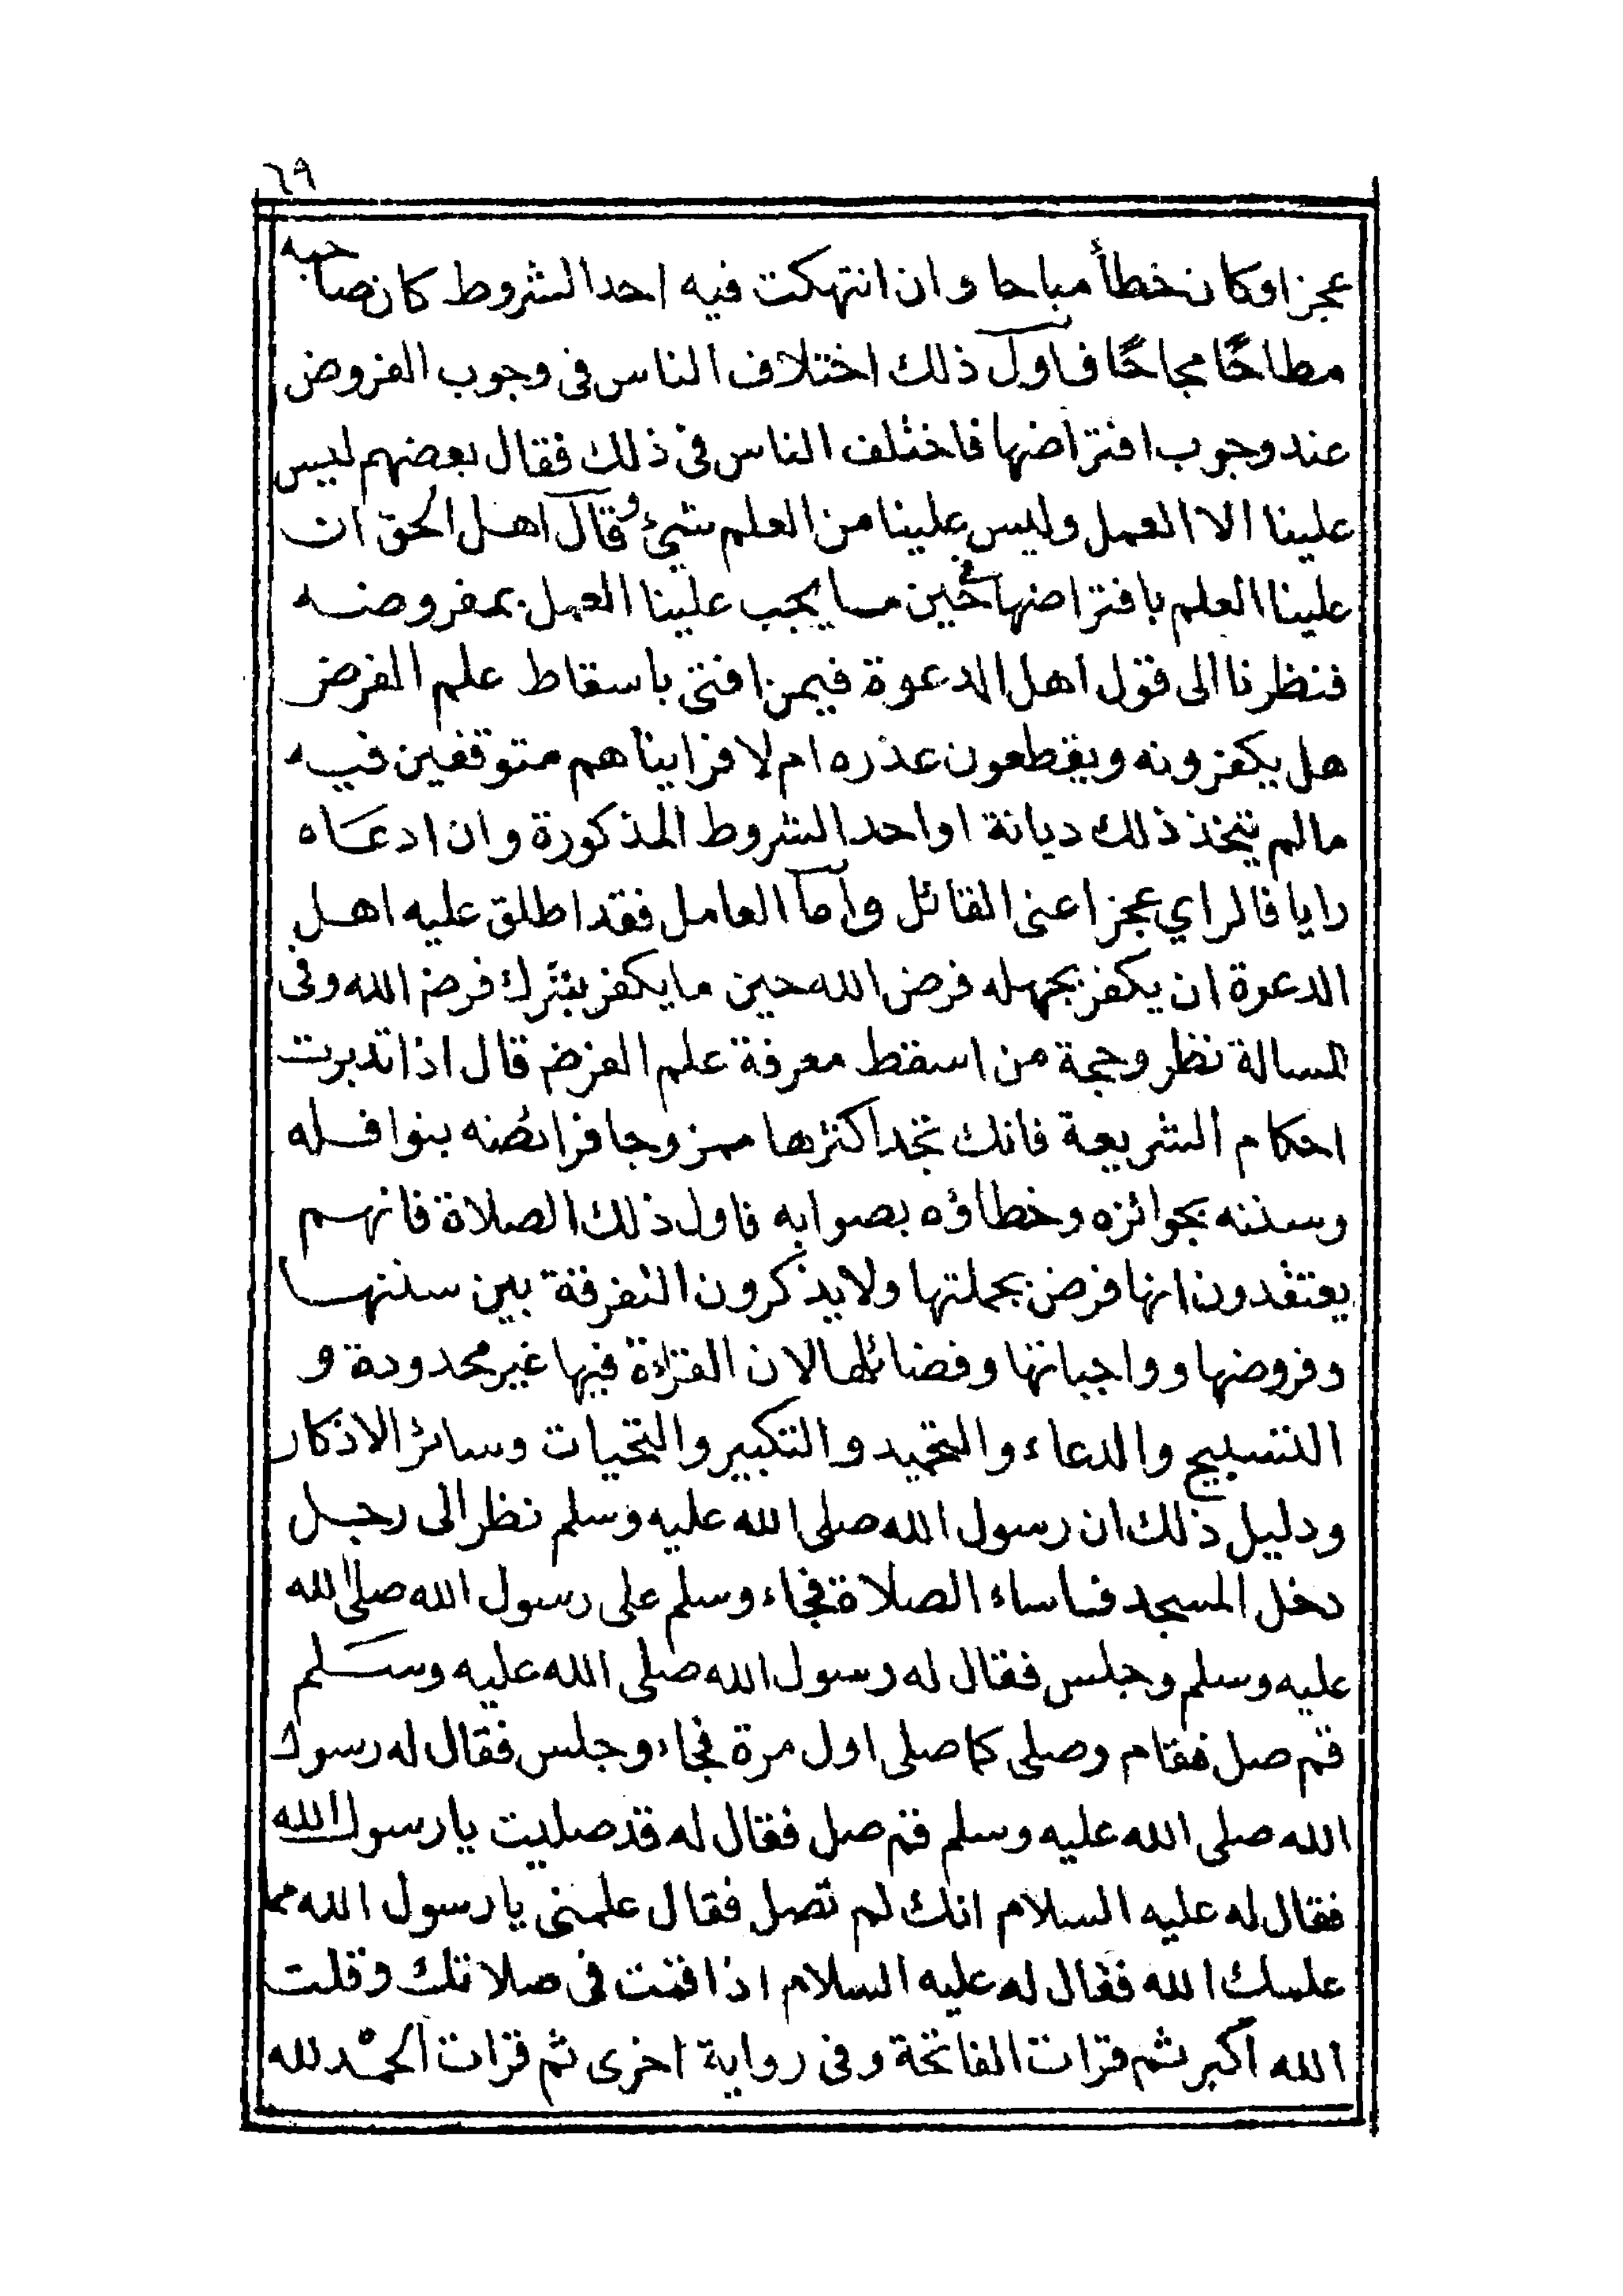 ٦٩
عجزا وكان خطأ مباحا وان انتهكت فيه احد الشروط كان صاحبه
مطاحًا مجاحًا فاول ذلك اختلاف الناس فى وجوب الفروض
عند وجوب افتراضها فاختلف الناس فى ذلك فقال بعضهم ليس
علينا الا العمل وليس علينا من العلم شئ وقال اهل الحق ان
علينا العلم بافتراضها فى حين ما يجب علينا العمل بمفروضه
فنظرنا الى قول اهل الدعوة فيمن افتى باسقاط علم الفرض
هل يكفرونه ويقطعون عذره ام لا فرايناهم متوقفين فيه
مالم يتخذ ذلك ديانة او احد الشروط المذكورة وان ادعاه
رايا فالراي عجز اعنى القائل واما العامل فقد اطلق عليه اهل
الدعوة ان يكفر بجهله فرض الله حين ما يكفر بترك فرض الله وفى
المسالة نظر وحجة من اسقط معرفة علم الفرض قال اذا تدبرت
احكام الشريعة فانك تجد اكثرها ممزوجا فرائضه بنوافله
وسننه بجوائزه وخطاؤه بصوابه فاول ذلك الصلاة فانهم
يعتقدون انها فرض بجملتها ولا يذكرون التفرقة بين سننها
وفروضها وواجباتها وفضائلها لان القراءة فيها غير محدودة و
التسبيح والدعاء والتحميد والتكبير والتحيات وسائر الاذكار
ودليل ذلك ان رسول الله صلى الله عليه وسلم نظر الى رجل
دخل المسجد فاساء الصلاة فجاء وسلم على رسول الله صلى الله
عليه وسلم وجلس فقال له رسول الله صلى الله عليه وسلم
قم صل فقام وصلى كما صلى اول مرة فجاء وجلس فقال له رسول
الله صلى الله عليه وسلم قم صل فقال له قد صليت يا رسول الله
فقال له عليه السلام انك لم تصل فقال علمنى يا رسول الله مما
علمك الله فقال له عليه السلام اذا قمت فى صلاتك وقلت
الله اكبر ثم قرات الفاتحة وفى رواية اخرى ثم قرات الحمد لله